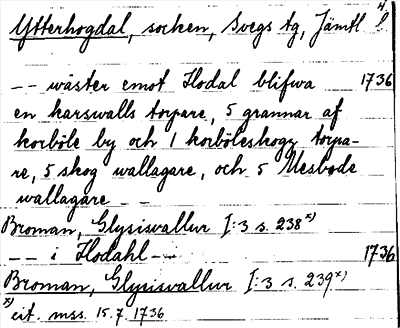 Ytterhogdal, socken, Svegs tg, Jämtl. l.
-- wäster emot Hodal blifwa 1736
en karswalls torpare, 5 grannar af
korböle by och 1 korböleskogz torpa-
re, 5 skog wallagare, och 5 Mesbode
wallagare --
Broman, Glysisvallur I:3 s. 238 x)
-- i Hodahl -- 1736
Broman, Glysisvallur I:3 s. 239 x)
x) cit. mss. 15.7.1736